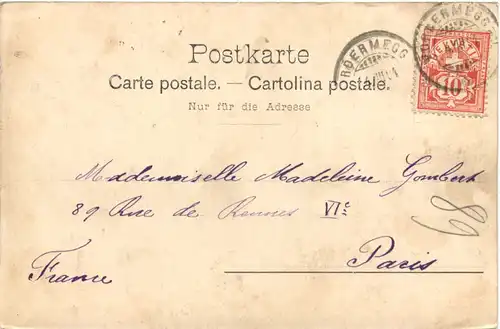 Postkarte
Carte postale. — Cartolina postale.
Nur für die Adresse
HELVETIA
10
Mademoiselle Madeleine Gombert
89 Rue de Rennes VIe
Paris
France
89